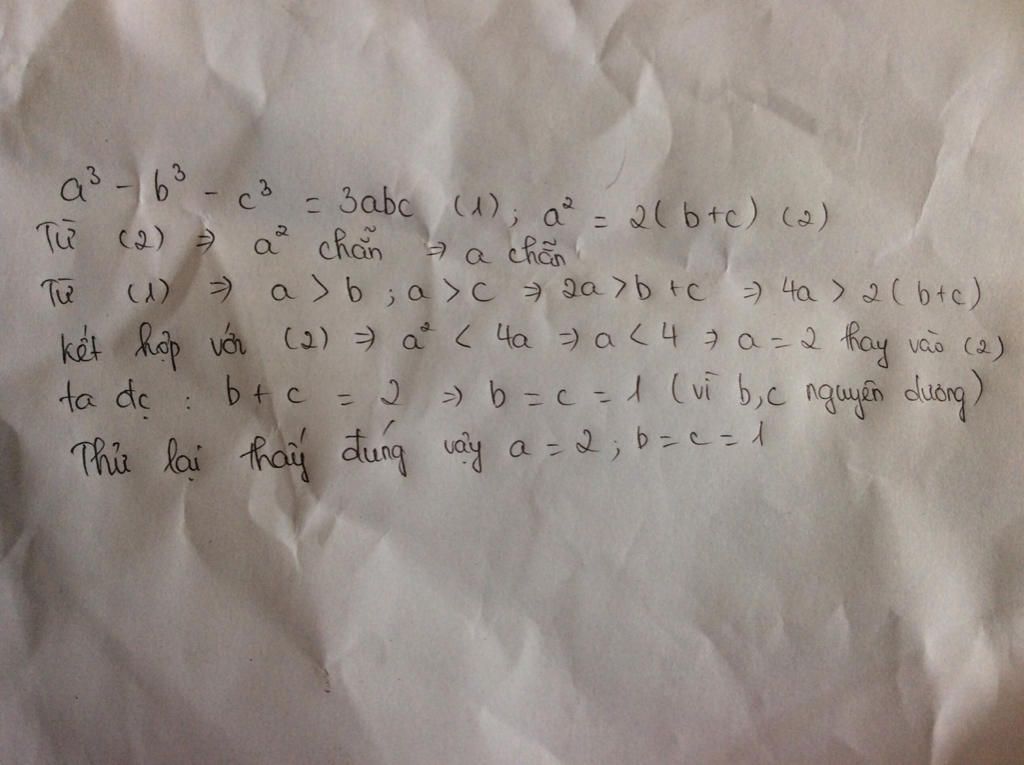 a³ - b³ - c³ = 3abc (1); a² = 2(b+c) (2)
Từ (2) ⇒ a² chẵn ⇒ a chẵn
Từ (1) ⇒ a > b ; a > c ⇒ 2a > b + c ⇒ 4a > 2(b+c)
kết hợp với (2) ⇒ a² < 4a ⇒ a < 4 ⇒ a = 2 thay vào (2)
ta đc : b + c = 2 ⇒ b = c = 1 (vì b,c nguyên dương)
Thử lại thấy đúng vậy a = 2 ; b = c = 1